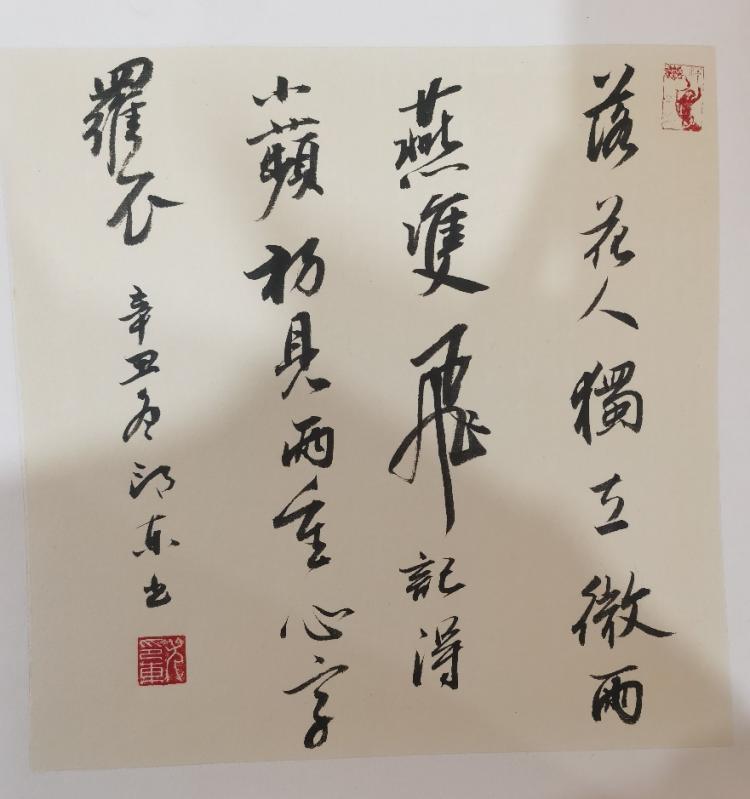 落花人獨立微雨
燕雙飛記得
小蘋初見兩重心字
羅衣
辛丑冬 東书